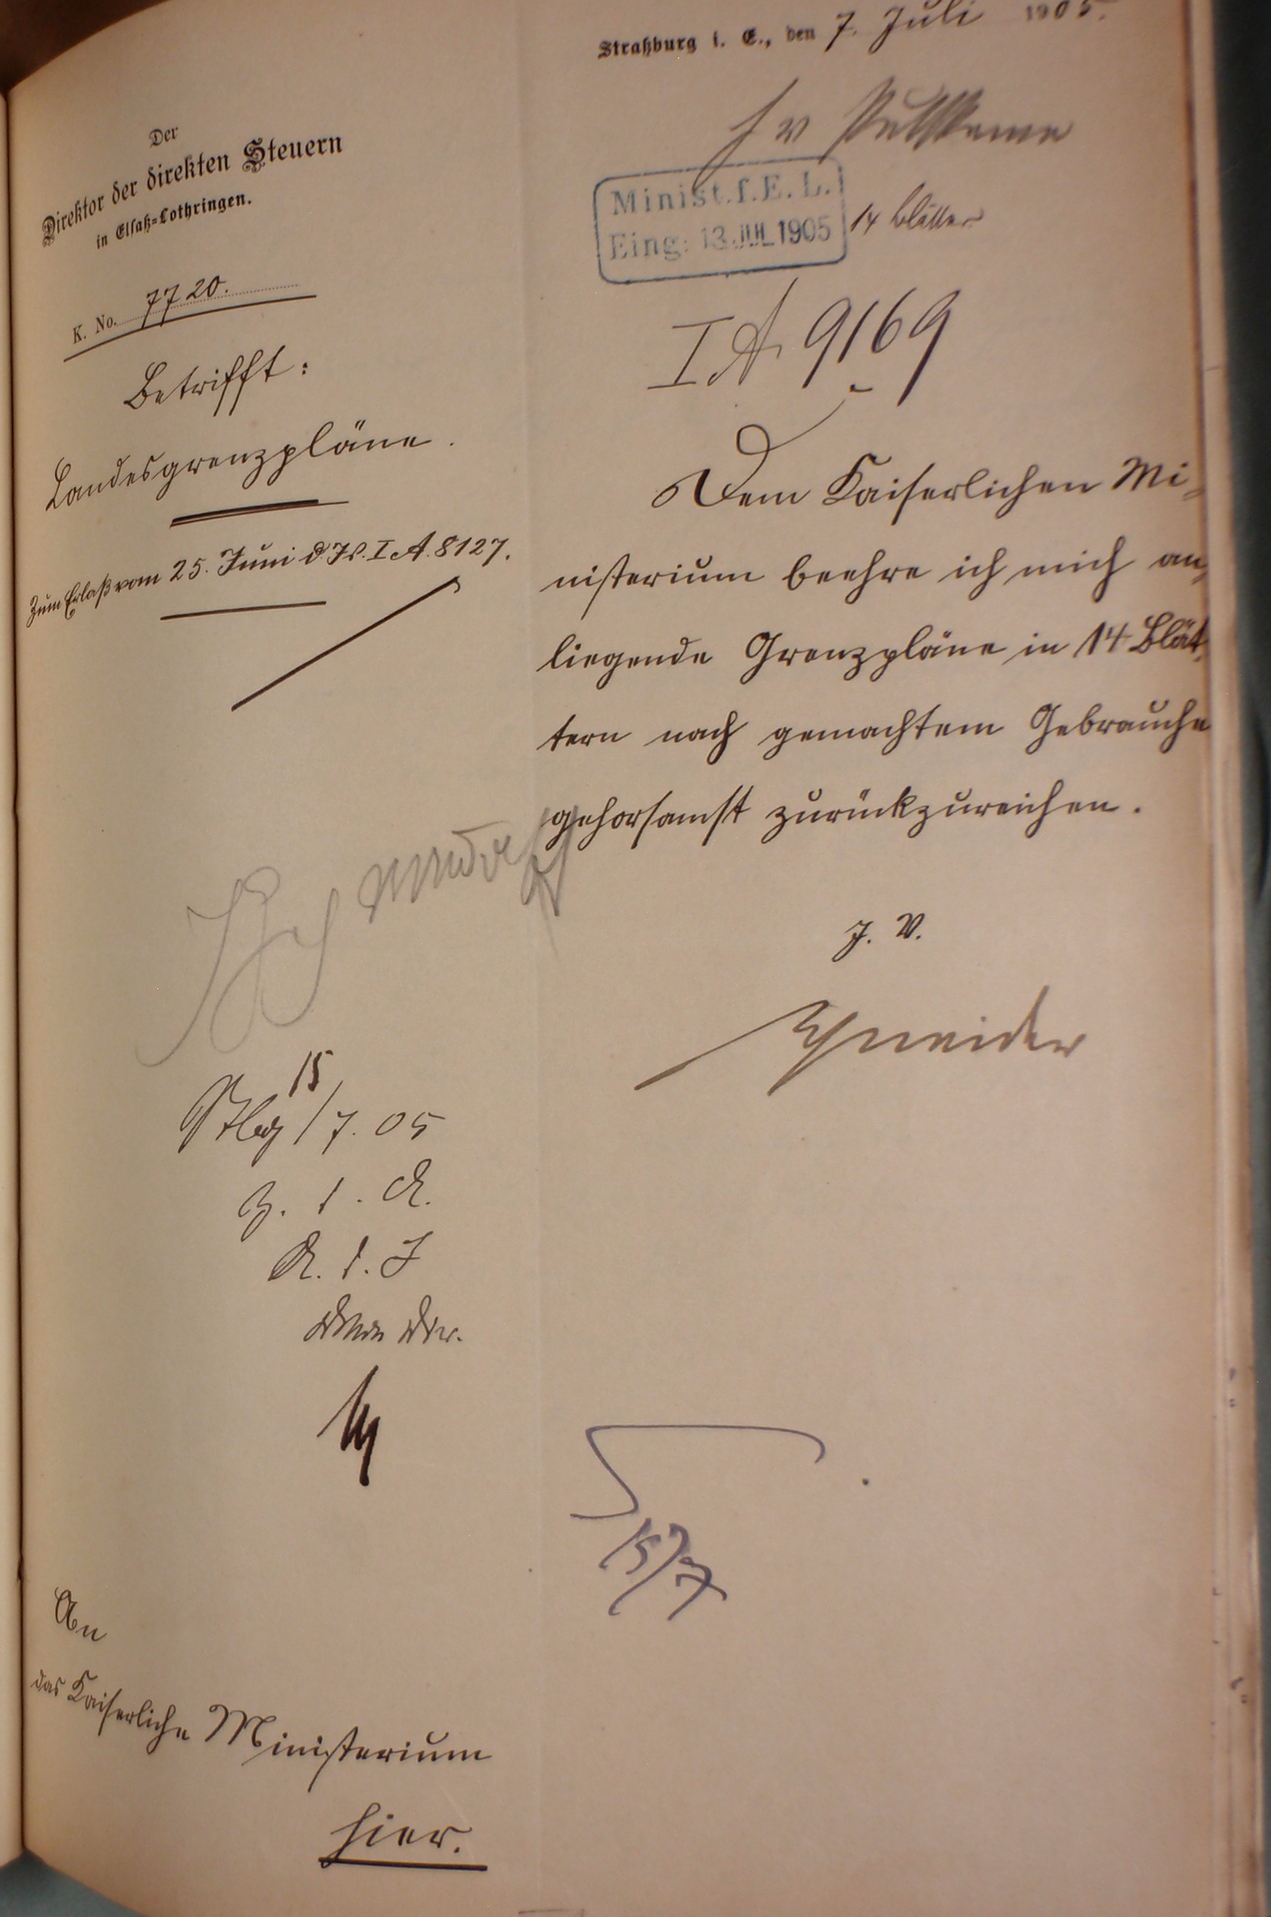 Straßburg i. E., den 7. Juli 1905.
Der
Direktor der direkten Steuern
in Elsaß=Lothringen.
K. No. 7720.
Betrifft:
Landesgrenzpläne.
Zum Erlaß vom 25. Juni d. Js. I. A. 8127.
Minist. f. E. L.
Eing: 13. JUL 1905
14 Blätter
I A 9169
Dem Kaiserlichen Mi-
nisterium beehre ich mich an-
liegende Grenzpläne in 14 Blät-
tern nach gemachtem Gebrauche
gehorsamst zurückzureichen.
J. V.
Schneider
Stbg 15/7. 05
z. d. A.
A. d. J
15/7
An
das Kaiserliche Ministerium
hier.